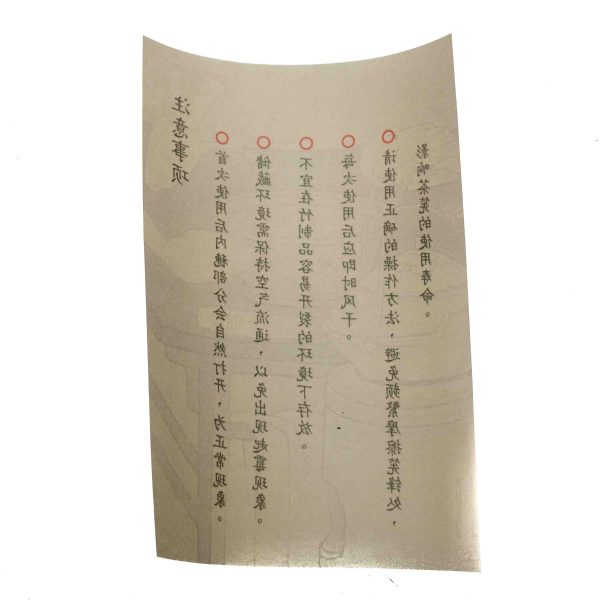 注意事项
○ 首次使用后内穗部分会自然打开，为正常现象。
○ 储藏环境需保持空气流通，以免出现起霉现象。
○ 不宜在竹制品容易开裂的环境下存放。
○ 每次使用后应即时风干。
○ 请使用正确的操作方法，避免频繁摩擦筅锋处，
影响茶筅的使用寿命。